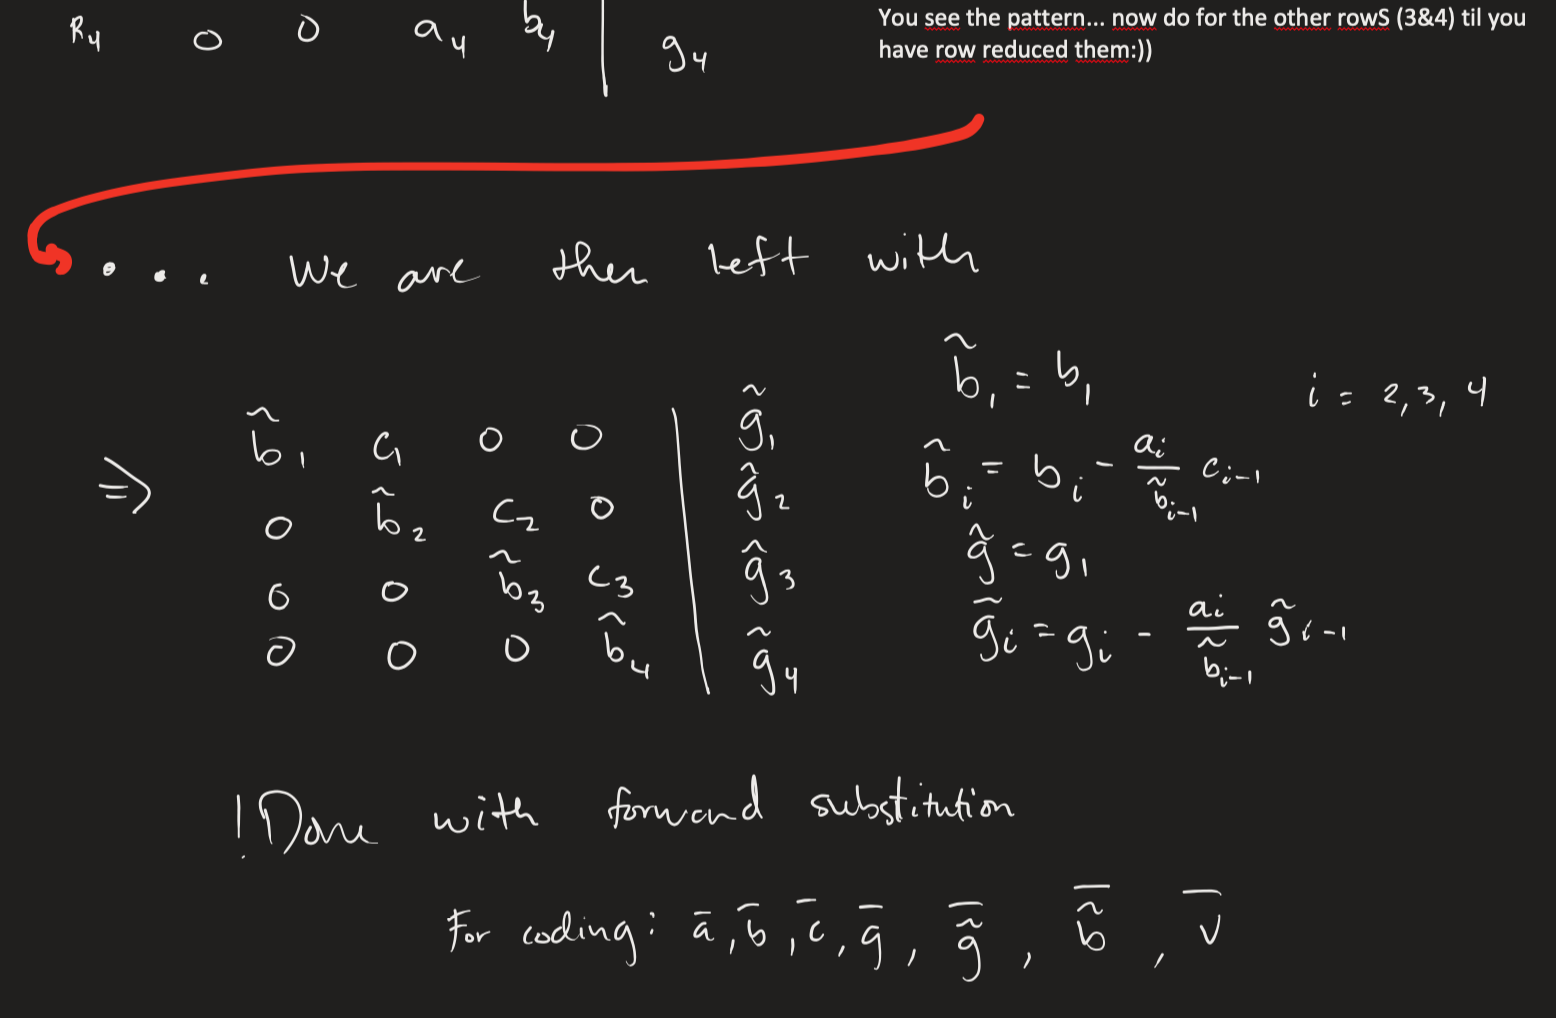 R₄ 0 0 a₄ b₄ | g₄
You see the pattern... now do for the other rowS (3&4) til you
have row reduced them:))
... We are then left with
b̃₁ = b₁
i = 2,3,4
⇒
b̃₁ c₁ 0 0 | g̃₁
0 b̃₂ c₂ 0 | g̃₂
0 0 b̃₃ c₃ | g̃₃
0 0 0 b̃₄ | g̃₄
b̃ᵢ = bᵢ - aᵢ/b̃ᵢ₋₁ cᵢ₋₁
g̃ = g₁
g̃ᵢ = gᵢ - aᵢ/b̃ᵢ₋₁ g̃ᵢ₋₁
! Done with forward substitution
For coding: ā, b̄, c̄, ḡ, g̃̄, b̃̄, v̄